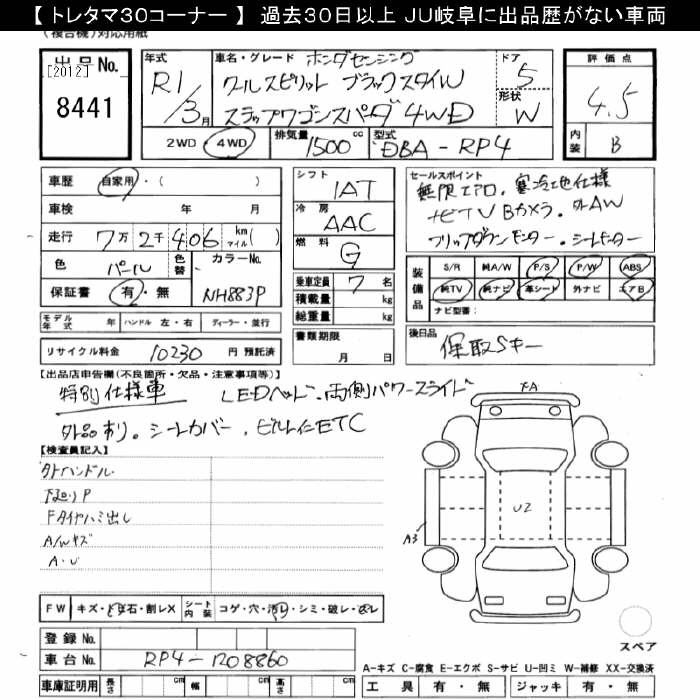 【トレタマ30コーナー】 過去30日以上 JU岐阜に出品歴がない車両
(複合機)対応用紙
出品No.
[2012]
8441
年式
R1/3月
車名・グレード ホンダセンシング
クールスピリット ブラックスタイル
ステップワゴンスパーダ 4WD
ドア
5
形状
W
評価点
4.5
内装
B
2WD・4WD
排気量 1500 cc
型式 DBA-RP4
車歴 自家用・( )
車検 年 月
走行 7万2千406 km マイル( )
色 パール 色替
カラーNo. NH883P
保証書 有・無
シフト
IAT
冷房
AAC
燃料
G
乗車定員 7 名
積載量 kg
総重量 kg
セールスポイント
無限エアロ、寒冷地仕様
ナビTV Bカメラ、外AW
フリップダウンモニター、シートヒーター
装備品 S/R 純A/W P/S P/W ABS
純TV 純ナビ 革シート 外ナビ エアB
ナビ型番:
モデル年式 年 ハンドル 左・右 ディーラー・並行
書類期限
月 日
後日品
保取Sキー
リサイクル料金 10230 円 預託済
【出品店申告欄(不良箇所・欠品・注意事項等)】
特別仕様車 LEDヘッド、両側パワースライド
外品あり。シートカバー、ビルトインETC
【検査員記入】
タトハンドル
下廻りP
Fタイヤハミ出し
A/Wキズ
A・U
FA
U2
A3
FW キズ・とび石・割レX シート内装 コゲ・穴・汚レ・シミ・破レ・スレ
登録No.
車台No. RP4-1208860
車庫証明用 長さ cm 幅 cm 高さ cm
スペア
A-キズ C-腐食 E-エクボ S-サビ U-凹ミ W-補修 XX-交換済
工具 有・無 ジャッキ 有・無